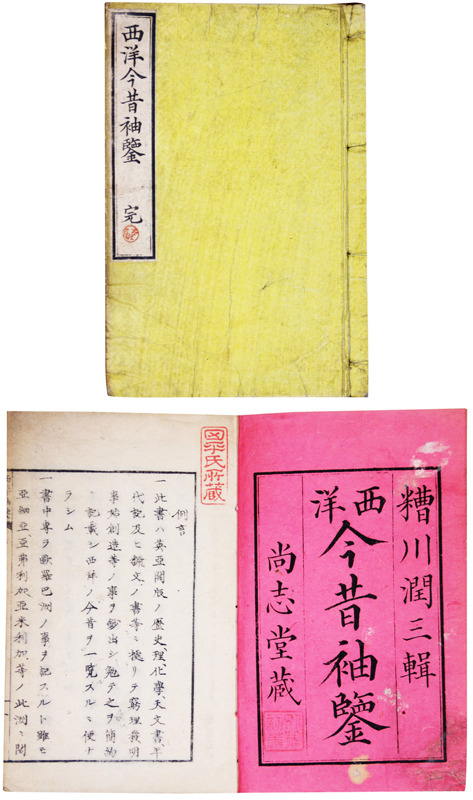 西洋今昔袖鑒
完
糟川潤三輯
西洋
今昔袖鑒
尚志堂蔵
例言
一此書ハ英亞開版ノ歴史、理化學、天文書年
代記及ヒ雜文ノ書等ニ據リテ窮理發明
事始創造等ノ事ヲ出シ勉テ之ヲ簡約
記載シ西洋ノ今昔ヲ一覧スルニ便ナ
ラシム
一書中専ラ歐羅巴洲ノ事ヲ記スルト雖モ
亞細亞、亞弗利加亞米利加等ノ此洲ニ関
氏所蔵